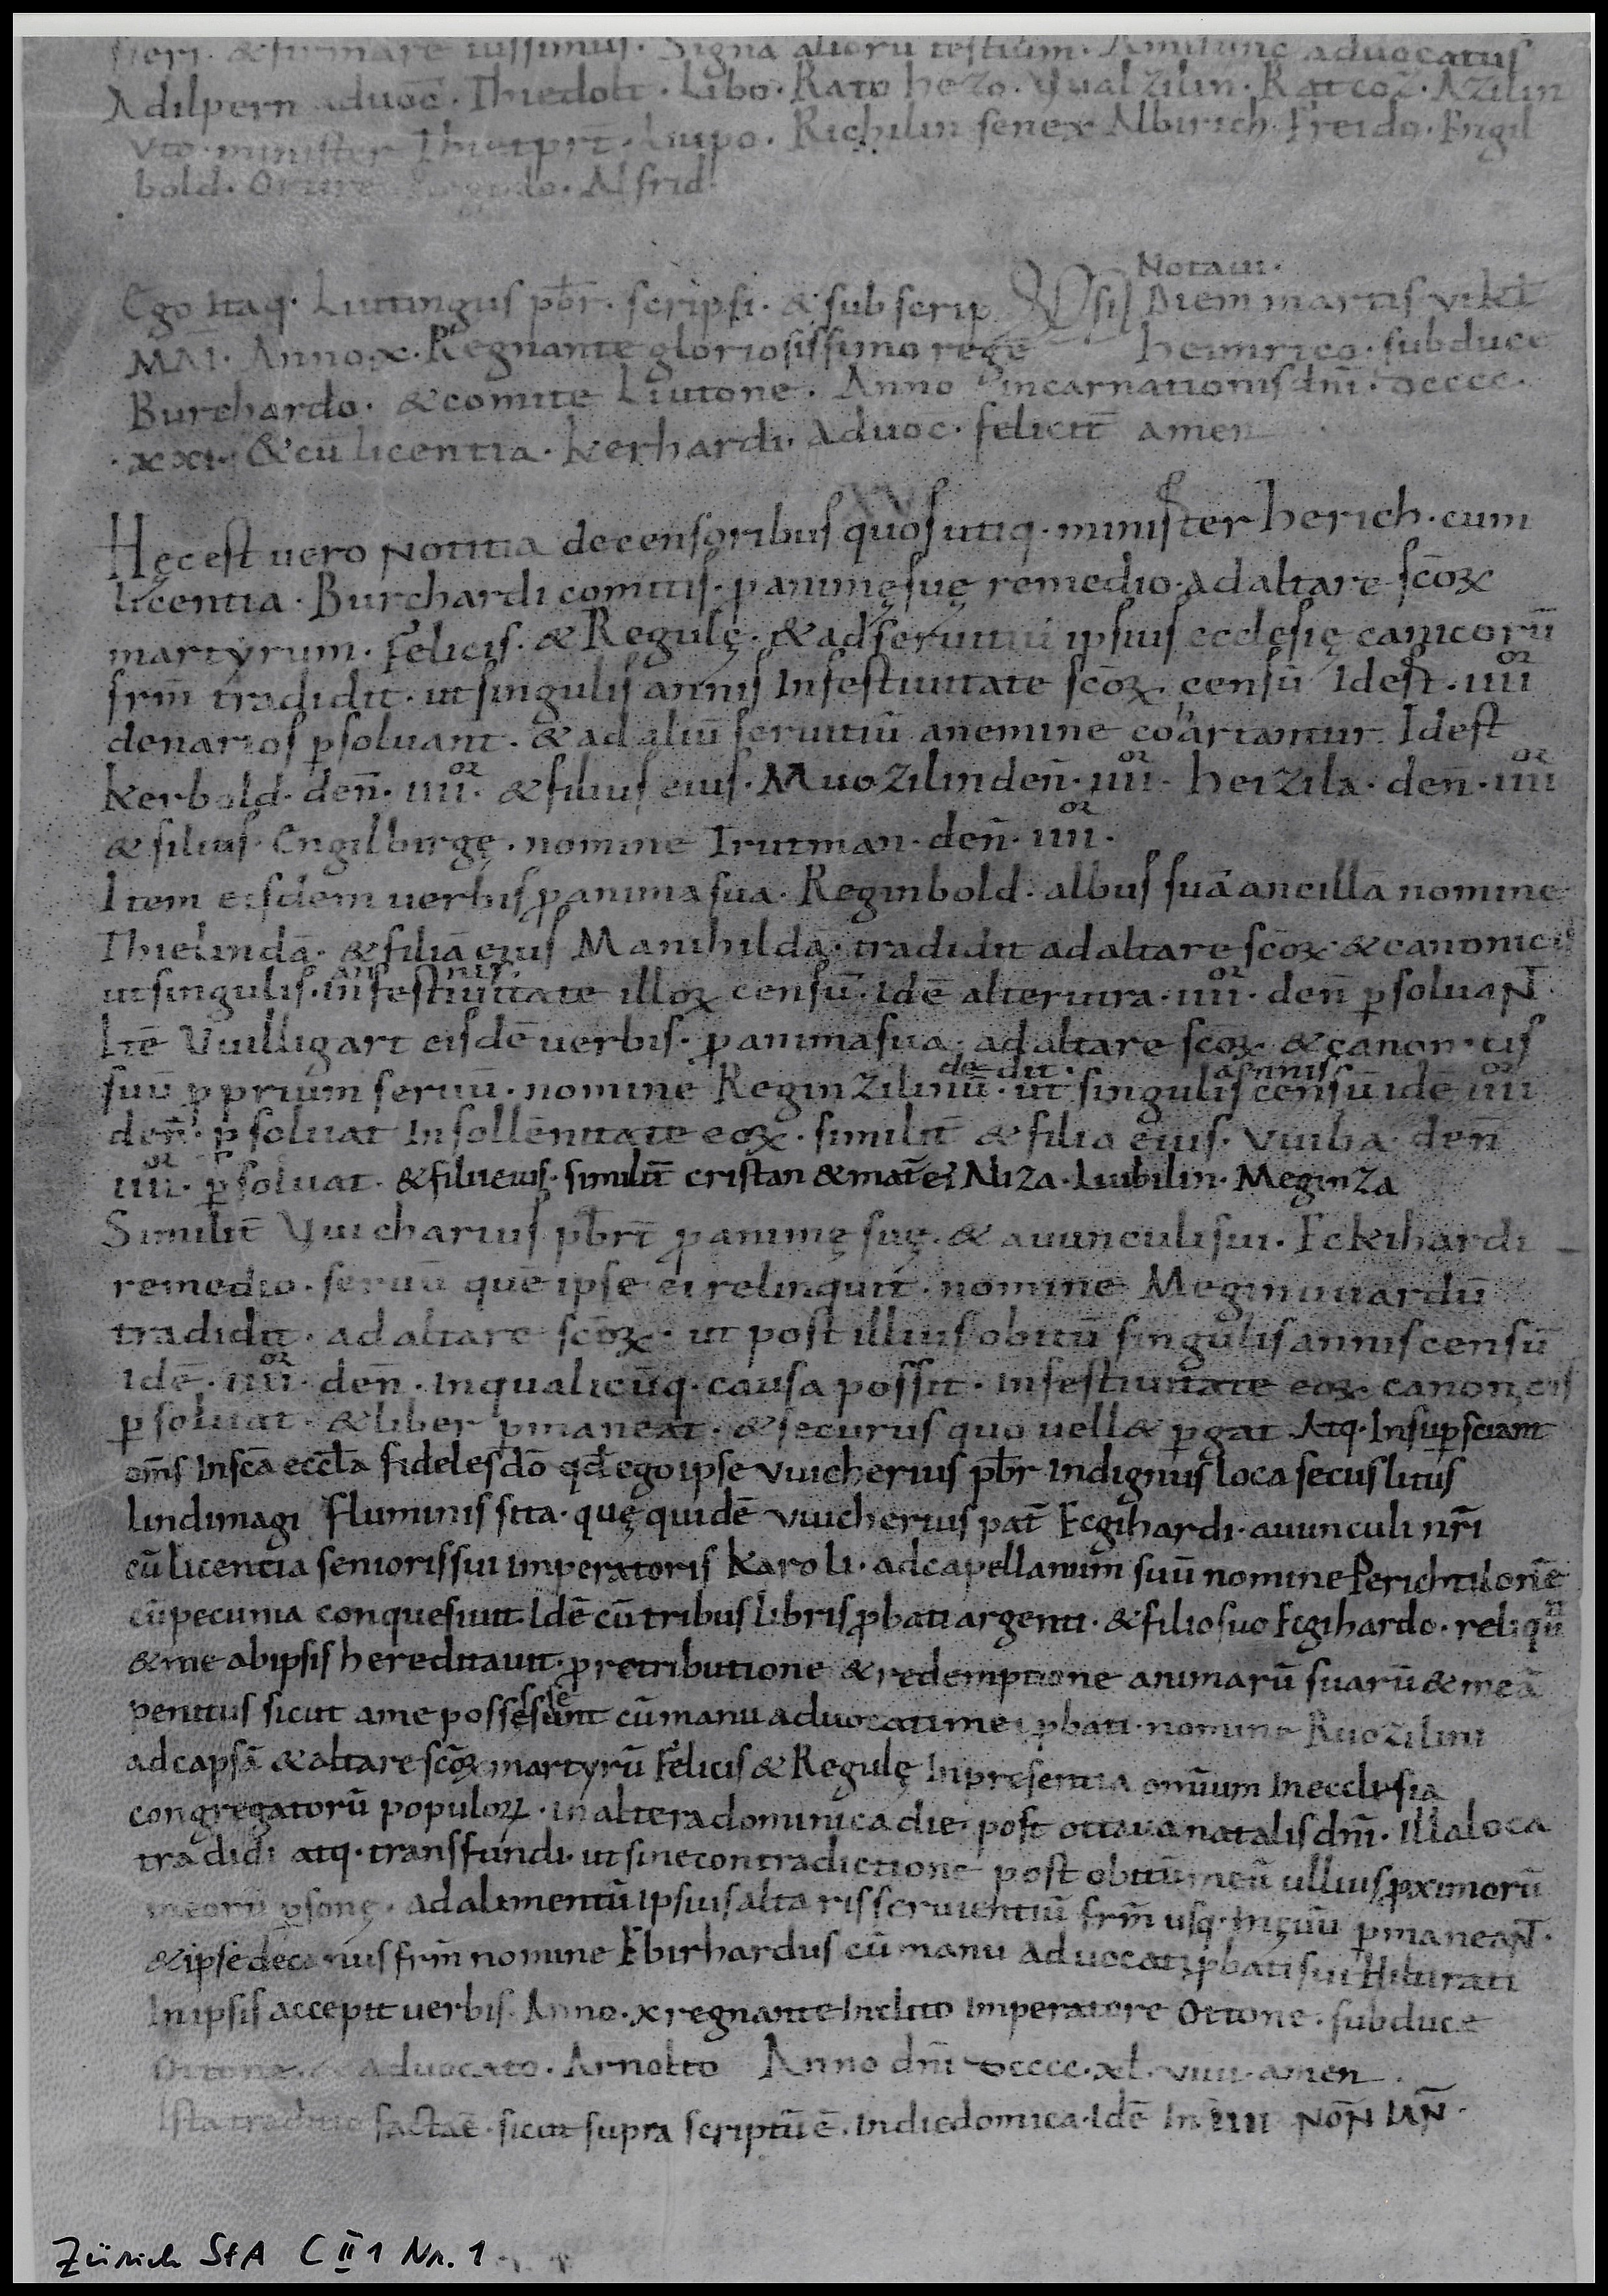 fieri · & firmare iussimus · Signa alioru testium · Amilunc aduocatus
Adilpern aduoc̄ · Thiedolt · Libo · Rato hezo · Vualzilin · Ratcoz · Azilin
Vto · minister Thietprt̄ · Liupo · Richilin senex Albirich · Freido · Engil
bold · Alfrid ·
Notaui ·
Ego itaq · Liutingus pb̄r · scripsi · & subscripsi Diem martis VI kl̄
MAI · Anno · x · Regnante gloriosissimo rege heinrico · subduce
Burchardo · & comite Liutone · Anno incarnationis dn̄i · dcccc ·
· xxi · & cū licentia · kerhardi · Aduoc · felicit̄ amen
Hęc est uero Notitia de censoribus quos utiq · minister herich · cum
licentia · Burchardi comitis · p animę suę remedio · ad altare sc̄oꝝ
martyrum · Felicis · & Regulę · & ad seruitiū ipsius ecclesię canicorū
frm̄ tradidit · ut singulis annis In festiuitate sc̄oꝝ · censū Idest · iiii or
denarios ꝑsoluant · & ad aliū seruitiū anemine coartantur Idest
kerbold · den̄ · iiii or · & filius eius · Muozilin den̄ · iiii or · heizila · den̄ · iiii or
& filius · Engilbirgę · nomine Trutman · den̄ · iiii or ·
Item eisdem uerbis ꝓ anima sua · Reginbold · albus suā ancillā nomine
Thielindā · & filiā eius Manihildā · tradidit ad altare sc̄oꝝ · & canonicis
ut singulis · annis · in festiuitate illoꝝ censū · Idē alterutra · iiii or · den̄ ꝑsoluaNT̄ ·
Itē Vuilligart eisdē uerbis · ꝓ anima sua · ad altare sc̄oꝝ · & canon · cis
suū ꝓprium seruū · nomine Reginzilinū · dedit · ut singulis annis censū idē iiii or
den̄ · ꝑsoluat In sollēnitate eoꝝ · similit̄ & filia eius · Vuiba · den̄
iiii or · ꝑsoluat · & filii eius · similit̄ cristan & mat̄ ei Aliza · Liubilin · Meginza
Similit̄ Vuicharius pb̄rt̄ ꝓ animę suę · & auunculi sui · Eckihardi
remedio · seruū quē ipse ei relinquit · nomine Meginuuardū
tradidit · ad altare sc̄oꝝ · ut post illius obitū singulis annis censū
Idē · iiii or · den̄ · in qualicūq · causa possit · in festiuitate eoꝝ · canonicis
ꝑsoluat · & liber ꝑmaneat · & securus quo uell& ꝑgat Atq · Insuꝑ sciant
om̄s In scā eccl̄a fideles dō qd̄ ego ipse Vuicherius pb̄r Indignus loca secus litus
lindimagi fluminis sita · quę quidē Vuicherius pat̄ Ecgihardi · auunculi nr̄i
cū licentia senioris sui imperatoris karoli · ad capellanum̄ suū nomine Perichtilonē
cū pecunia conquesiuit · Idē cū tribus libris ꝓbati argenti · & filio suo Ecgihardo · reliqu̅it
& me ab ipsis hereditauit · ꝓ retributione & redemptione animarū suarū & meā
penitus sicut a me possessę sunt cū manu aduocati mei ꝓbati · nomine Ruozilini
ad capsā & altare sc̄oꝝ martyrū Felicis & Regulę In presentia om̄ium In ecclesia
congregatorū populoꝝ · in altera dominica die post ottaua natalis dn̄i · Illa loca
tradidi atq · transfundi · ut sine contradictione post obitū meū ullius ꝓximorū
meorū ꝑsonę · ad alimentū ipsius altaris seruientiū frm̄ usq · In ęuū ꝑmaneaNT̄ ·
& ipse decanus frm̄ nomine Ebirhardus cū manu aduocati ꝓbati sui Hilturati
In ipsis accepit uerbis · Anno · x regnante Inclito Imperatore Ottone · subduce
Ottone · & aduocato · Arnolto Anno dn̄i dcccc · xl · viiii · amen ·
Ista traditio facta ē · sicut supra scriptū ē · in die domica · Idē In IIII NON̄ IAN̄ ·
Zürich StA C II 1 Nr. 1